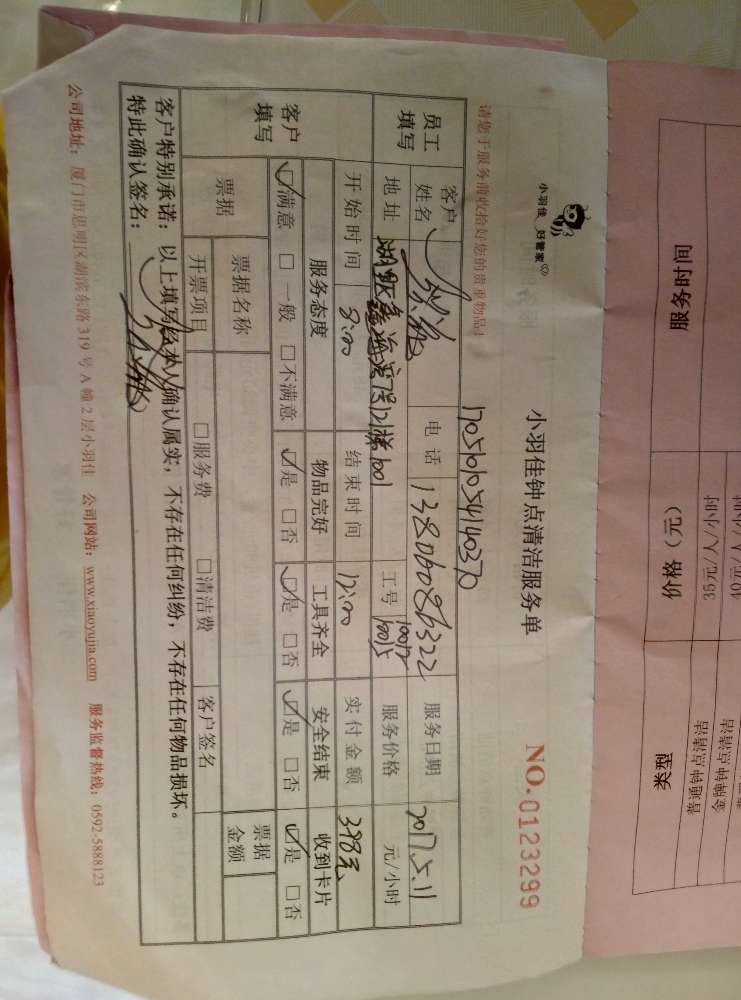 小羽佳 好管家
小羽佳钟点清洁服务单
NO.0123299
请您于服务前收拾好您的贵重物品!
17051054140370
员工填写
客户姓名
电话 13806086322
服务日期 2017.5.11
地址
1001
工号 10017 10015
服务价格 元/小时
开始时间 8:00
结束时间 12:00
实付金额 398元
客户填写
服务态度 物品完好 工具齐全 安全结束 收到卡片
☑满意 □一般 □不满意 ☑是 □否 ☑是 □否 ☑是 □否 ☑是 □否
票据 票据名称 票据金额
开票项目 □服务费 □清洁费 客户签名
客户特别承诺:以上填写经本人确认属实,不存在任何纠纷,不存在任何物品损坏。
特此确认签名:
公司地址:厦门市思明区湖滨东路319号A幢2层小羽佳 公司网站:www.xiaoyujia.com 服务监督热线:0592-5888123
服务时间 价格(元) 类型
35元/人/小时 普通钟点清洁
40元/人/小时 金牌钟点清洁